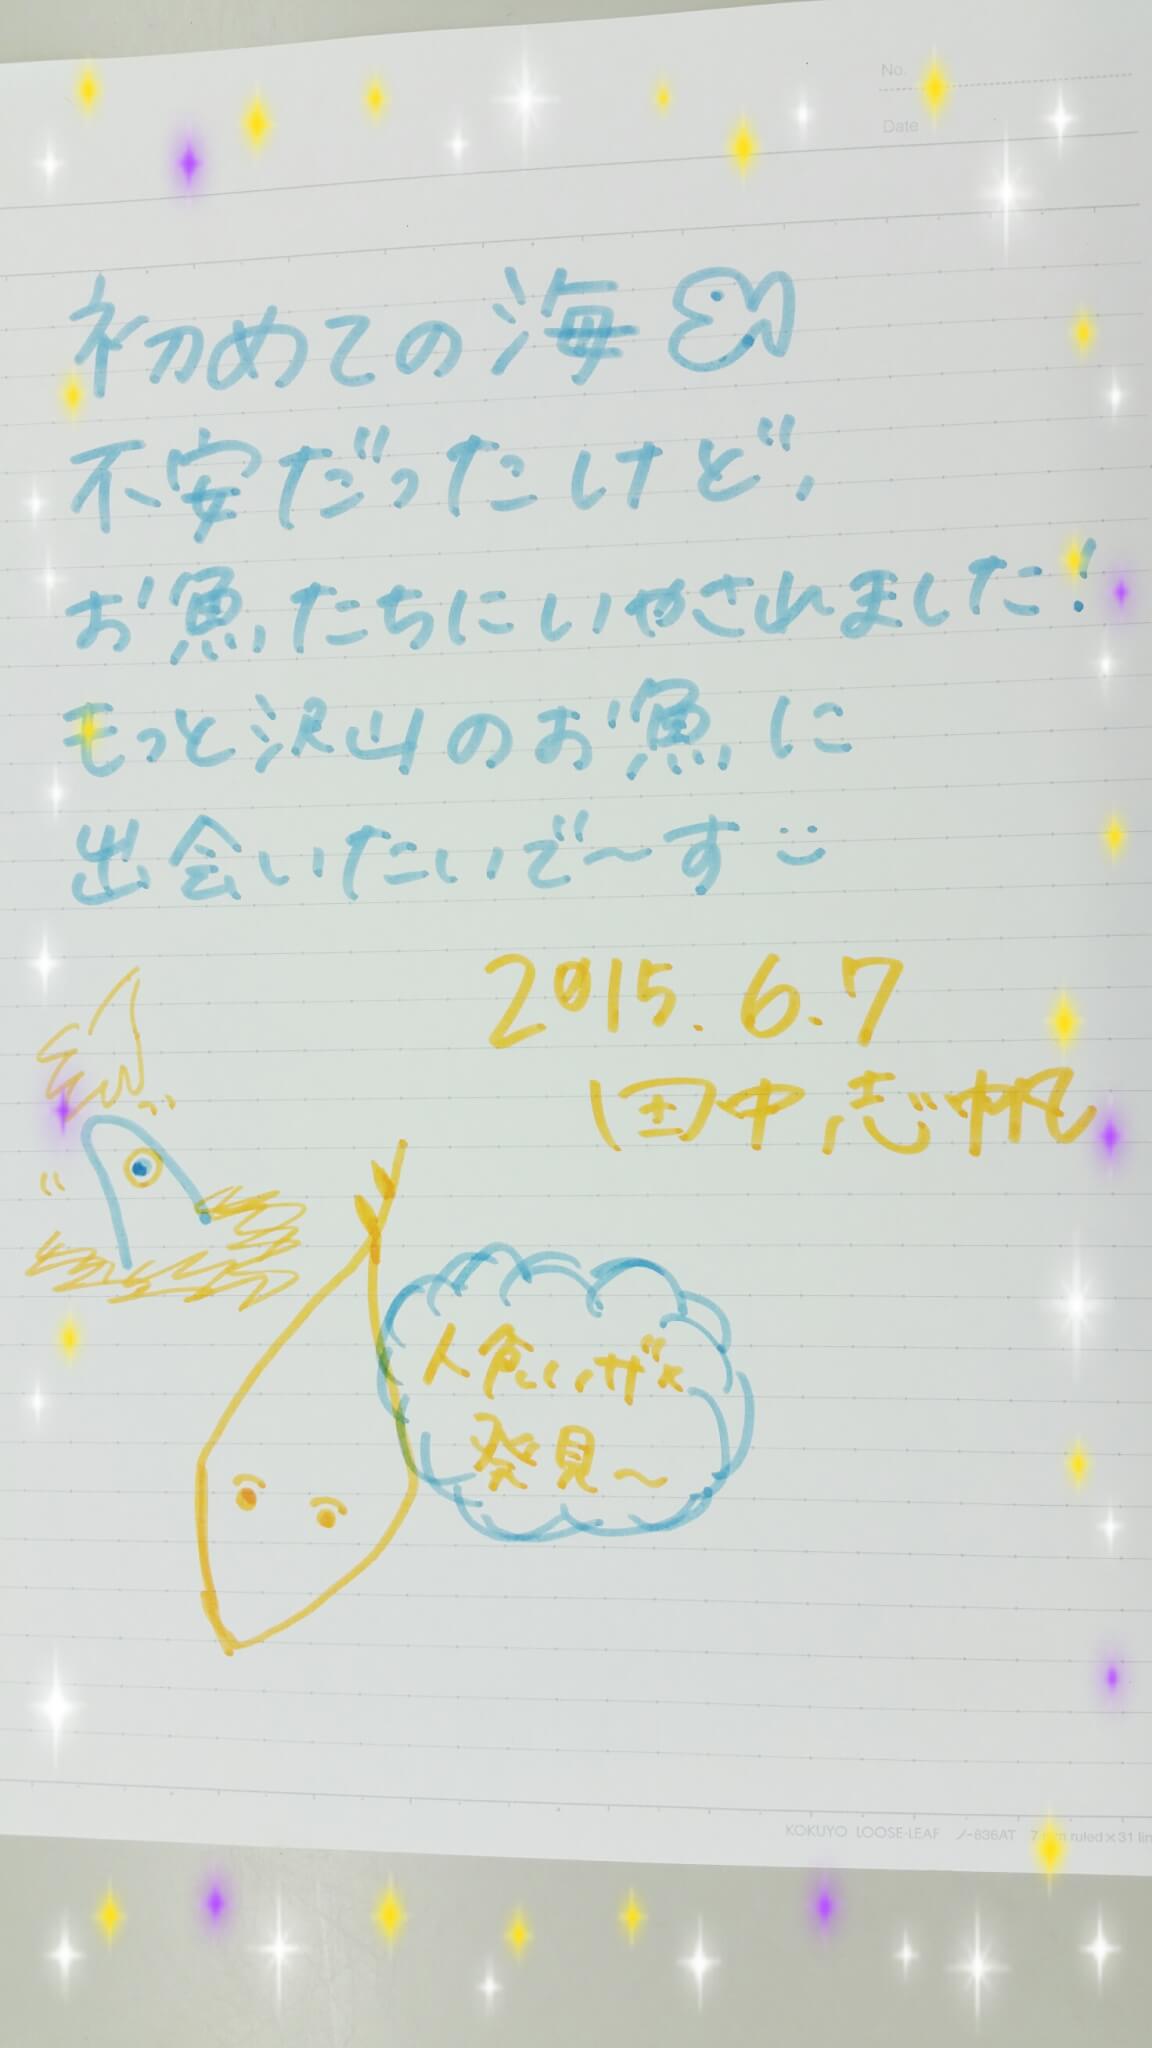 No.
Date
初めての海
不安だったけど、
お魚たちにいやされました!
もっと沢山のお魚に
出会いたいで〜す
2015.6.7
田中志帆
人食いザメ
発見〜
KOKUYO LOOSE-LEAF ノ-836AT 7 mm ruled×31 lin